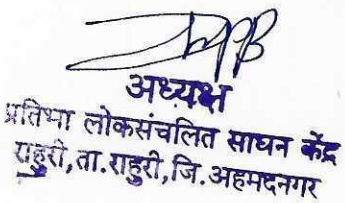 अध्यक्ष
प्रतिभा लोकसंचलित साधन केंद्र
राहुरी, ता.राहुरी, जि.अहमदनगर